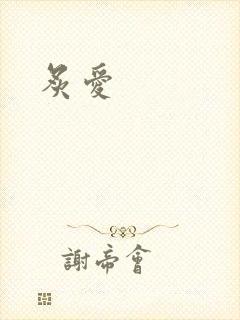 炙愛
謝帝會